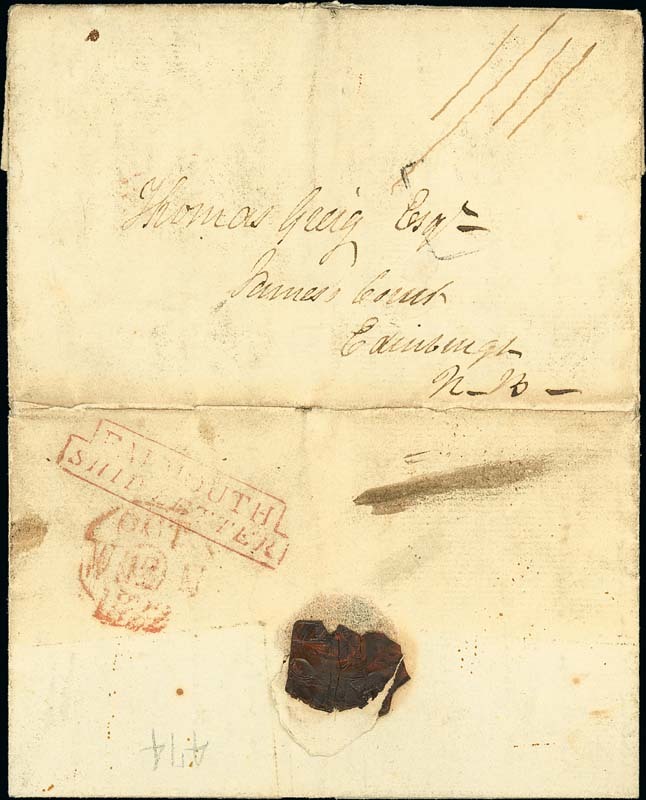 Thomas Greig Esqr
James's Court
Edinburgh
N-B-
FALMOUTH
SHIP LETTER
OCT
12
1822
474